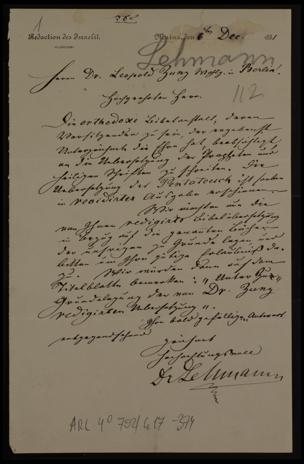 1
Redaction des Israelit.
Mainz, den 6ten Dec.
Lehmann
Herrn Dr. Leopold Zunz Wohlg. in Berlin!
112
Hochgeehrter Herr.
Die orthodoxe Bibelanstalt, deren
Vorsitzender zu sein, der ergebenst
Unterzeichnete die Ehre hat, beabsichtigt
an die Uebersetzung der Propheten und
heiligen Schriften zu schreiten. Die
Uebersetzung des Pentateuch ist soeben
in revidirter Ausgabe erschienen.
Wir möchten nun die
von Ihnen redigirte Bibelübersetzung
in Bezug auf die genannten Bücher
der unsrigen zu Grunde legen und
bitten um Ihre gütige Erlaubniß da-
zu. Wir würden dann auf dem
Titelblatte bemerken: "Unter Zu-
Grundelegung der von Dr. Zunz
redigirten Uebersetzung".
Ihrer bald gefälligen Antwort
entgegensehend
zeichnet
Hochachtungsvoll
Dr. Lehmann
ARC 4° 792/G17-374